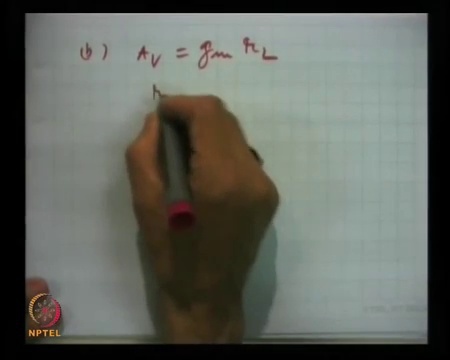 (b) A_V = g_m r_L
r
NPTEL